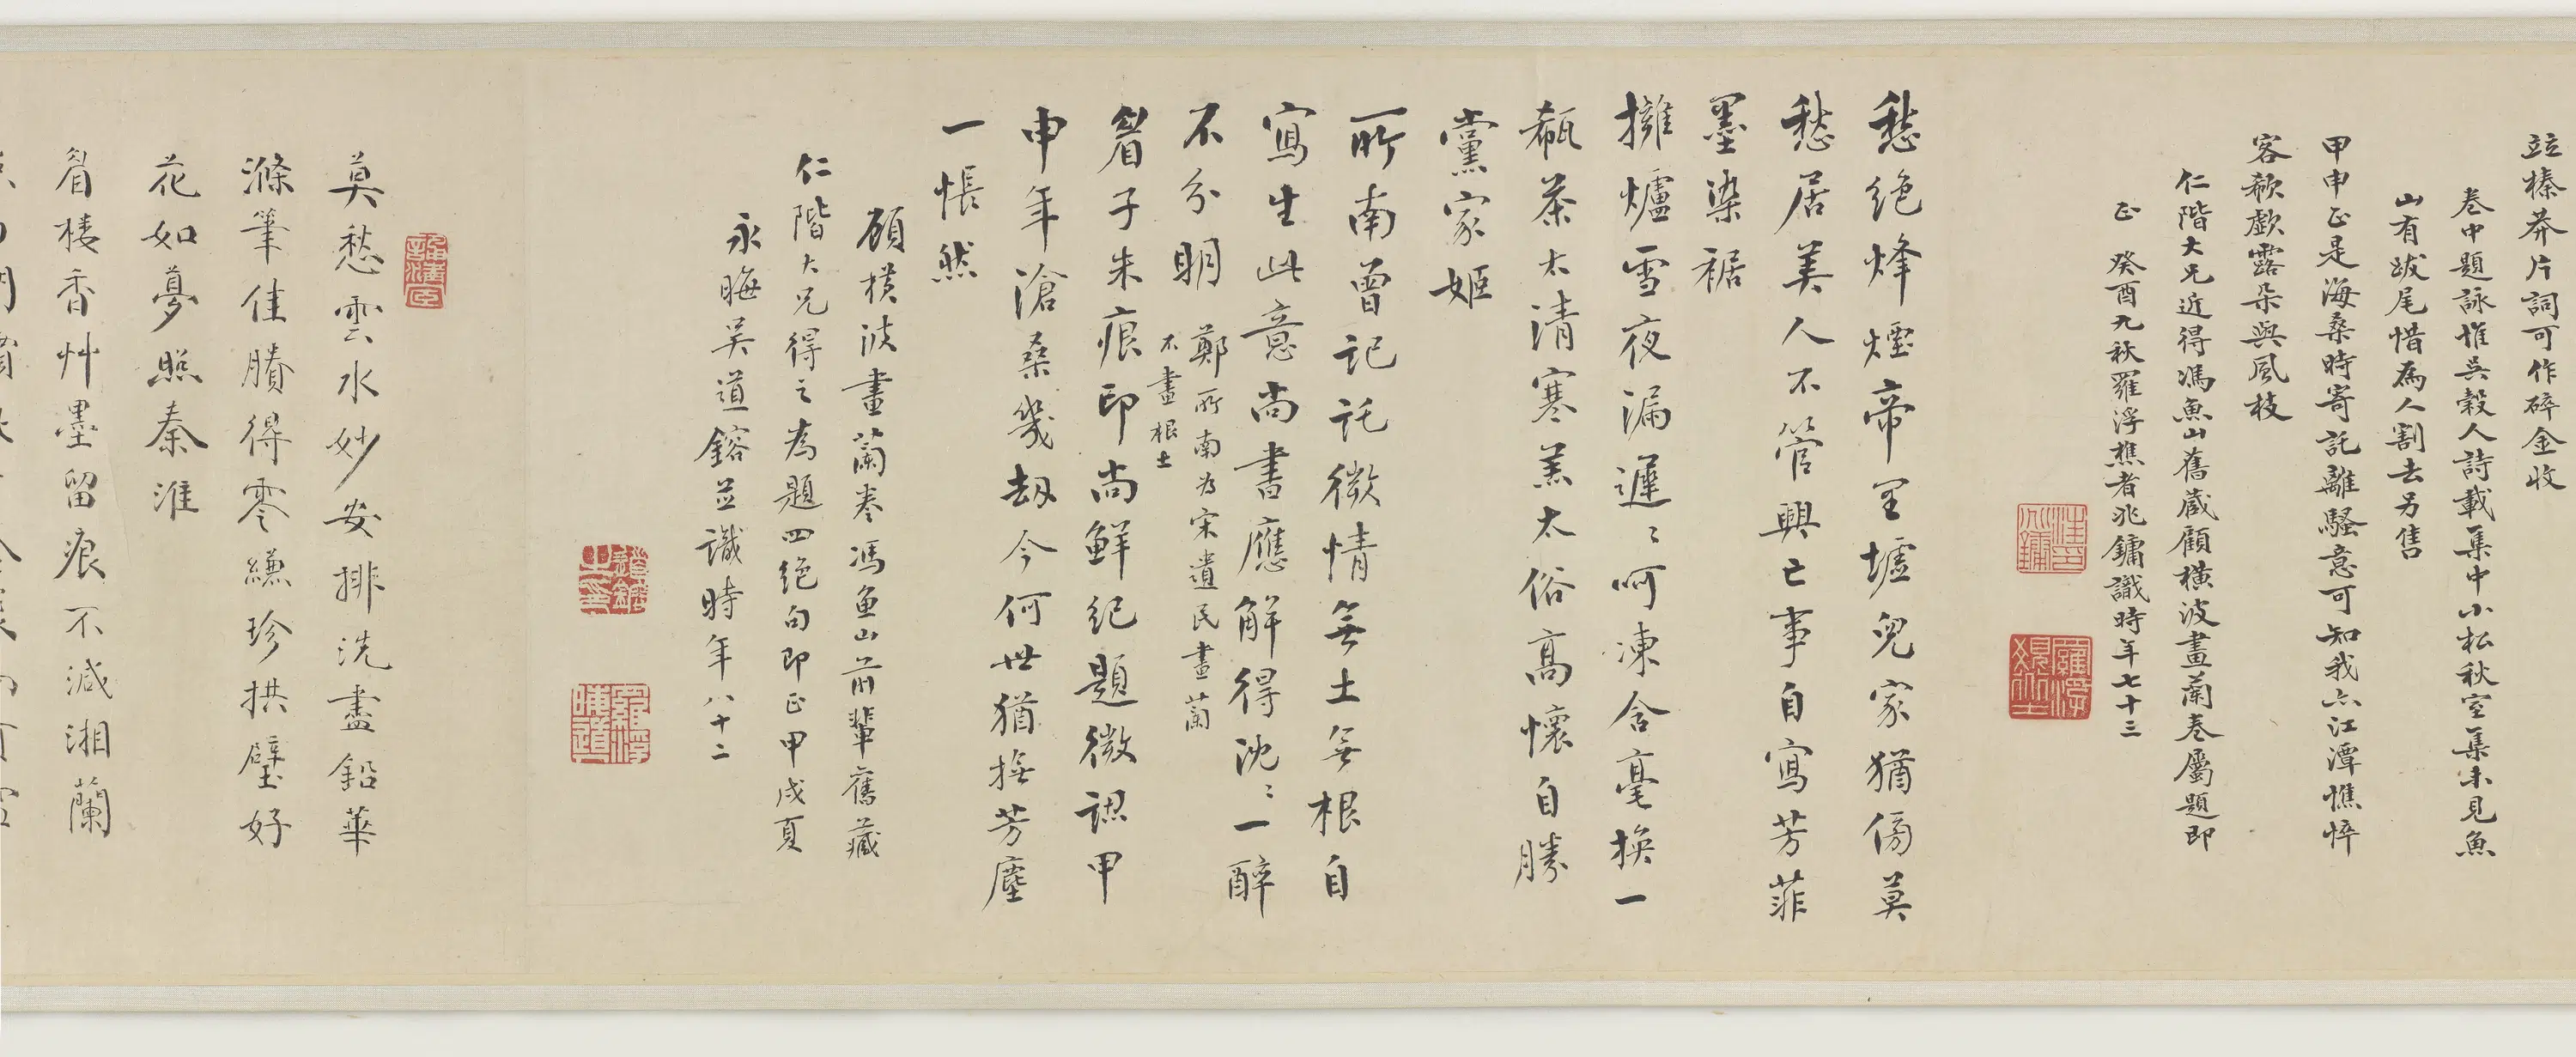 竝榛莽片詞可作碎金收
卷中題詠惟吳穀人詩載集中小松秋室集未見魚
山有跋尾惜爲人割去另售
甲申正是海桑時寄託離騷意可知我亦江潭憔悴
客欷歔露朵與風枝
仁階大兄近得馮魚山舊藏顧橫波畫蘭卷屬題即
正 癸酉九秋羅浮樵者兆鏞識時年七十三
愁絕烽煙帝里墟兒家猶傍莫
愁居美人不管興亡事自寫芳菲
墨染裾
擁爐雪夜漏遲〻呵凍含毫換一
甌茶太清寒羔太俗高懷自勝
黨家姬
所南曾記託微情無土無根自
寫生此意尚書應解得沈〻一醉
不分明 鄭所南为宋遺民畫蘭
不畫根土
眉子朱痕印尚鮮紀題微認甲
申年滄桑幾劫今何世猶撫芳塵
一悵然
顧横波畫蘭卷馮魚山前輩舊藏
仁階大兄得之为題四绝句即正甲戌夏
永晦吴道鎔並識時年八十二
莫愁雲水妙安排洗盡鉛華
滌筆佳賸得零縑珍拱璧好
花如夢照秦淮
眉樓香艸墨留痕不減湘蘭